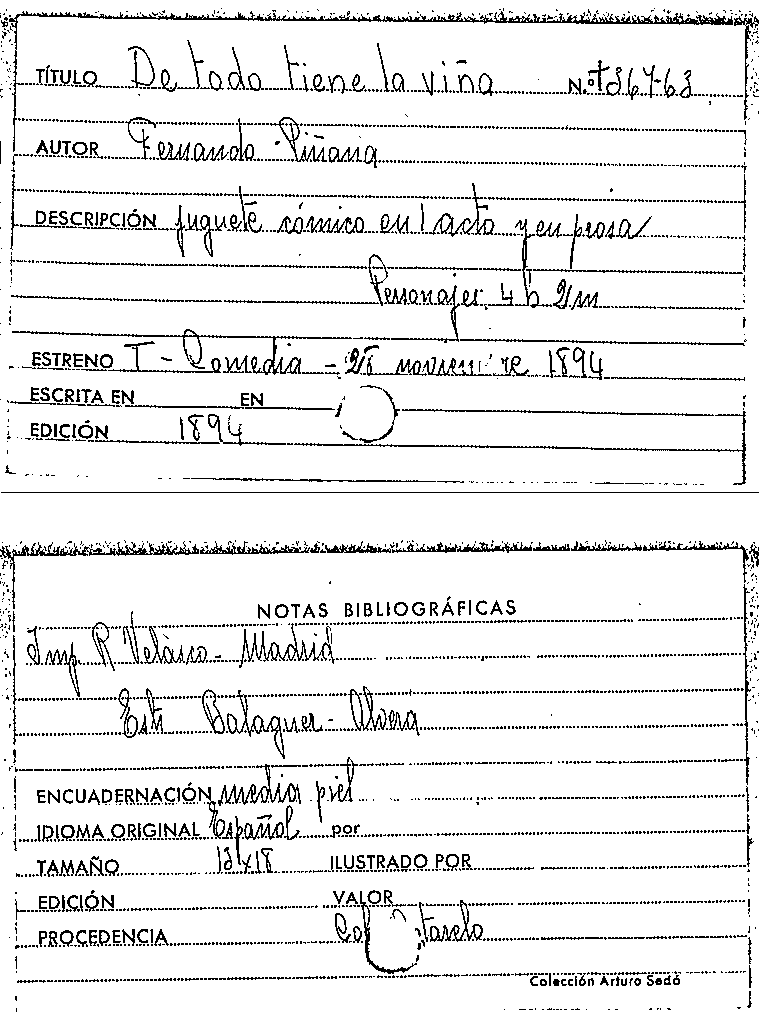 TÍTULO De todo tiene la viña N.º
AUTOR Fernando Piñana
DESCRIPCIÓN juguete cómico en 1 acto y en prosa
Personajes: 4 h 2 m
ESTRENO T - Comedia - 28 1894
ESCRITA EN EN
EDICIÓN 1894
NOTAS BIBLIOGRÁFICAS
Imp. R Velasco - Madrid
Balaguer - Alvera
ENCUADERNACIÓN media piel
IDIOMA ORIGINAL Español por
TAMAÑO ILUSTRADO POR
EDICIÓN VALOR
PROCEDENCIA
Colección Arturo Sedó